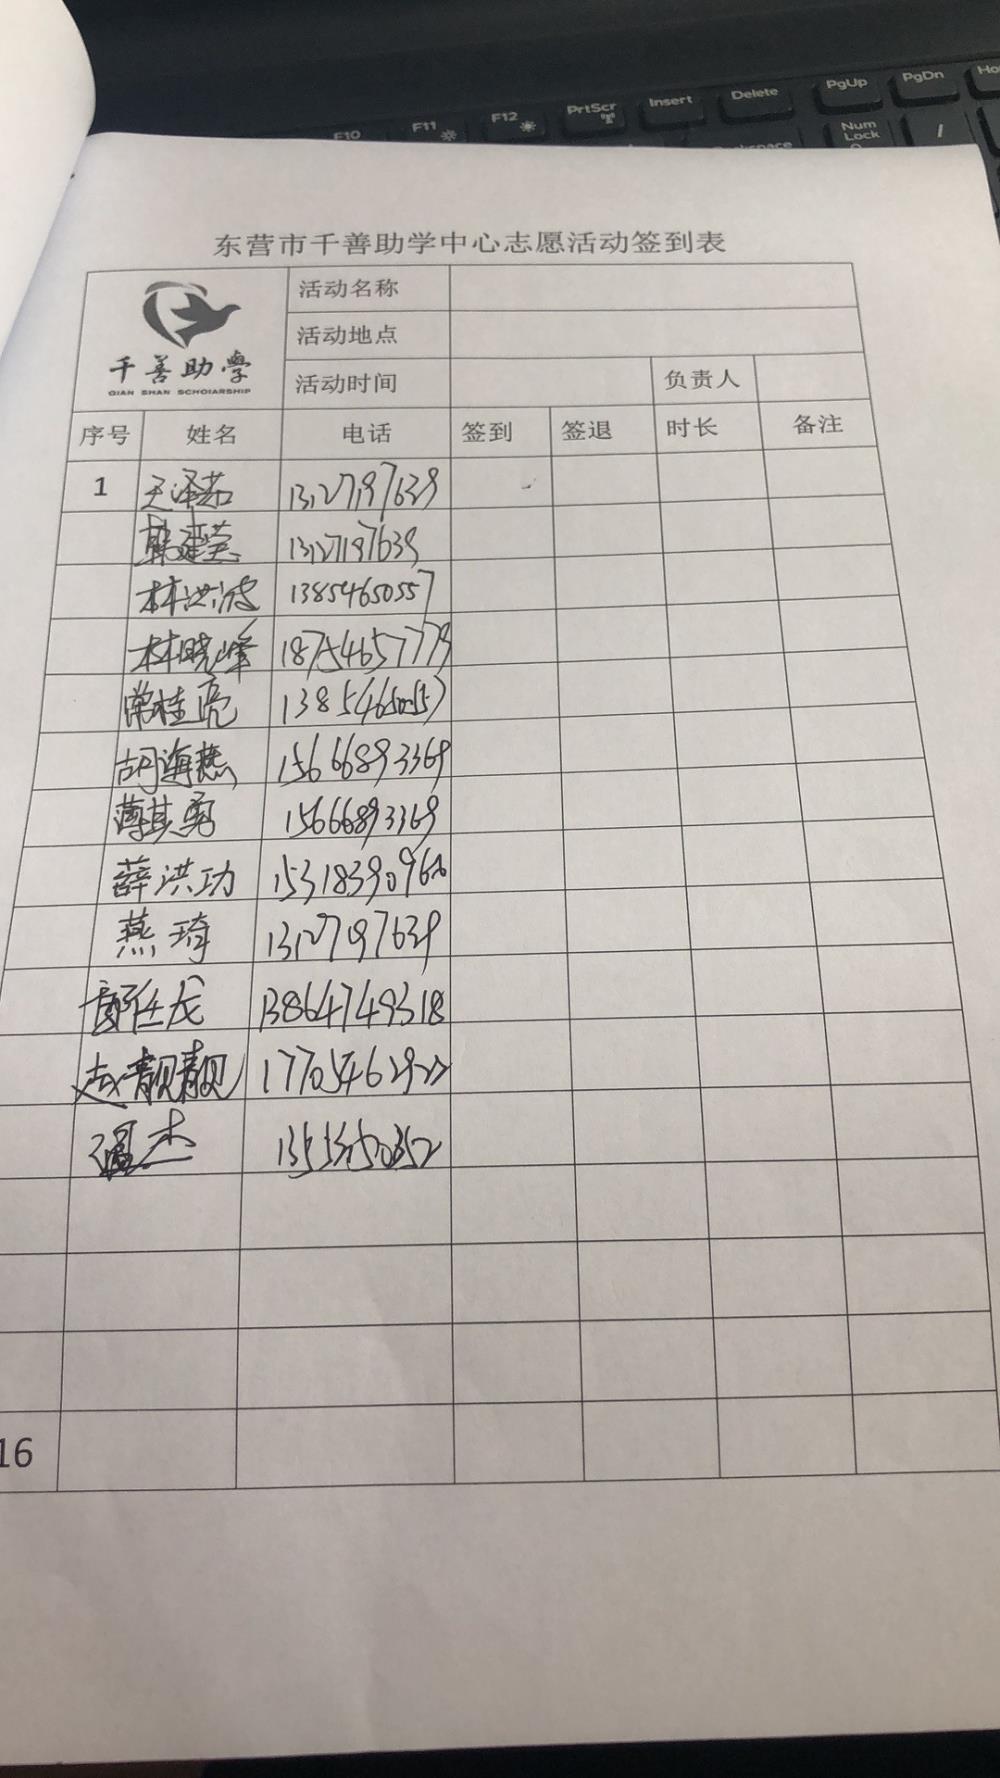 F10 F11 F12 PrtScr Insert Delete PgUp PgDn
Num Lock /
东营市千善助学中心志愿活动签到表
千善助學
QIAN SHAN SCHOIARSHIP
活动名称
活动地点
活动时间 负责人
序号 姓名 电话 签到 签退 时长 备注
1 王泽茹 13127197639
韩建莹 13127197639
林洪波 13854650557
林晓峰 18754657779
常桂亮 13854650557
胡海燕 15666893369
薄其勇 15666893369
薛洪功 15318390966
燕琦 13127197639
任龙 13864749318
赵靓靓 17705462922
杰
16